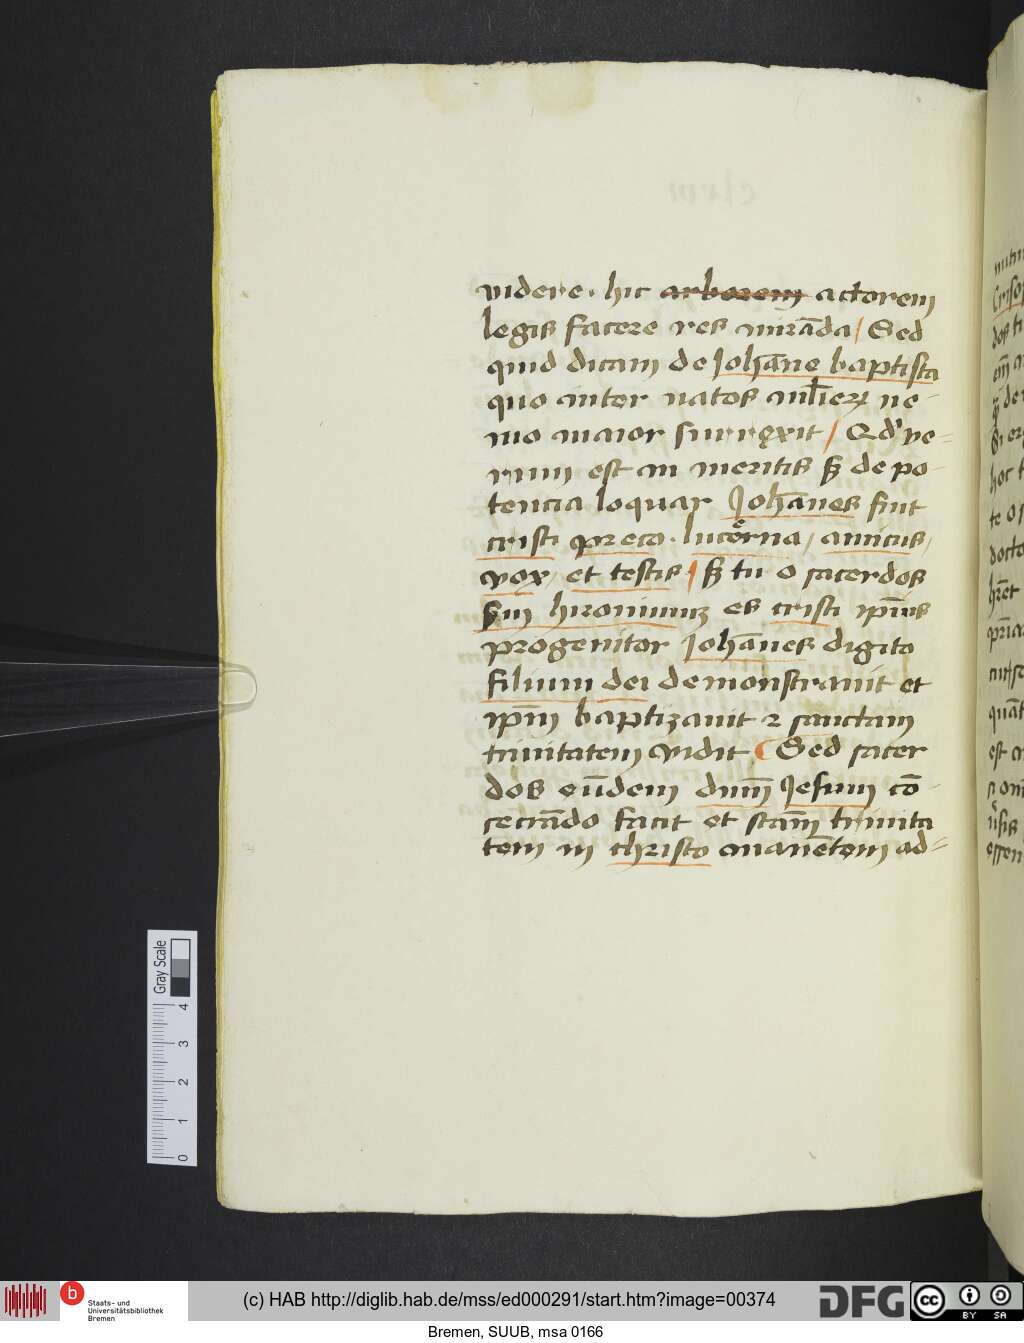 videre. hic arborem actorem
legis facere res mirāda / Sed
quid dicam de Johāne baptista
quo inter natos mlierꝝ ne-
mo maior surrexit / Qd' ve=
rum est in meritis sꝫ de po-
tencia loquar Johānes fuit
cristi preco. lucerna, amicus,
vox, et testis / sꝫ tu o sacerdos
Sm hironimuꝫ es cristi ipiūs
progenitor Johānes digito
filium dei demonstravit et
ipm̄ baptizavit ⁊ sanctam
trinitatem vidit Sed sacer
dos eūdem dnm̄ Jesum cō-
secrādo facit et sctam̄ trinita
tem in christo manētem ad=
Gray Scale
0 1 2 3 4
b
Staats- und
Universitätsbibliothek
Bremen
(c) HAB http://diglib.hab.de/mss/ed000291/start.htm?image=00374
DFG
cc BY SA
Bremen, SUUB, msa 0166